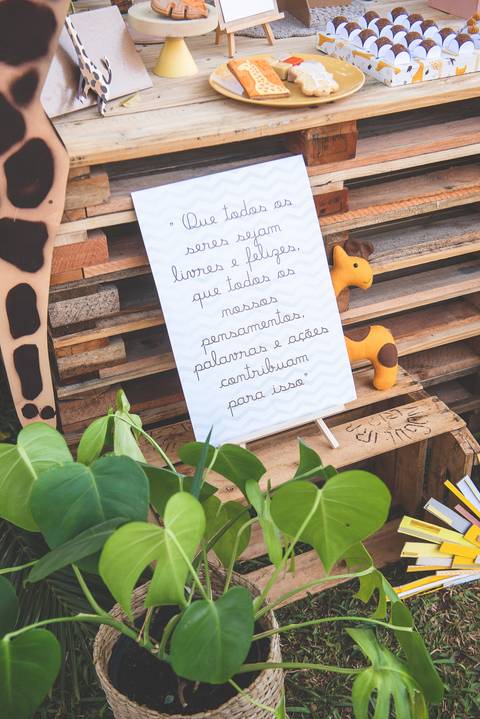 "Que todos os
seres sejam
livres e felizes,
que todos os
nossos
pensamentos,
palavras e ações
contribuam
para isso"